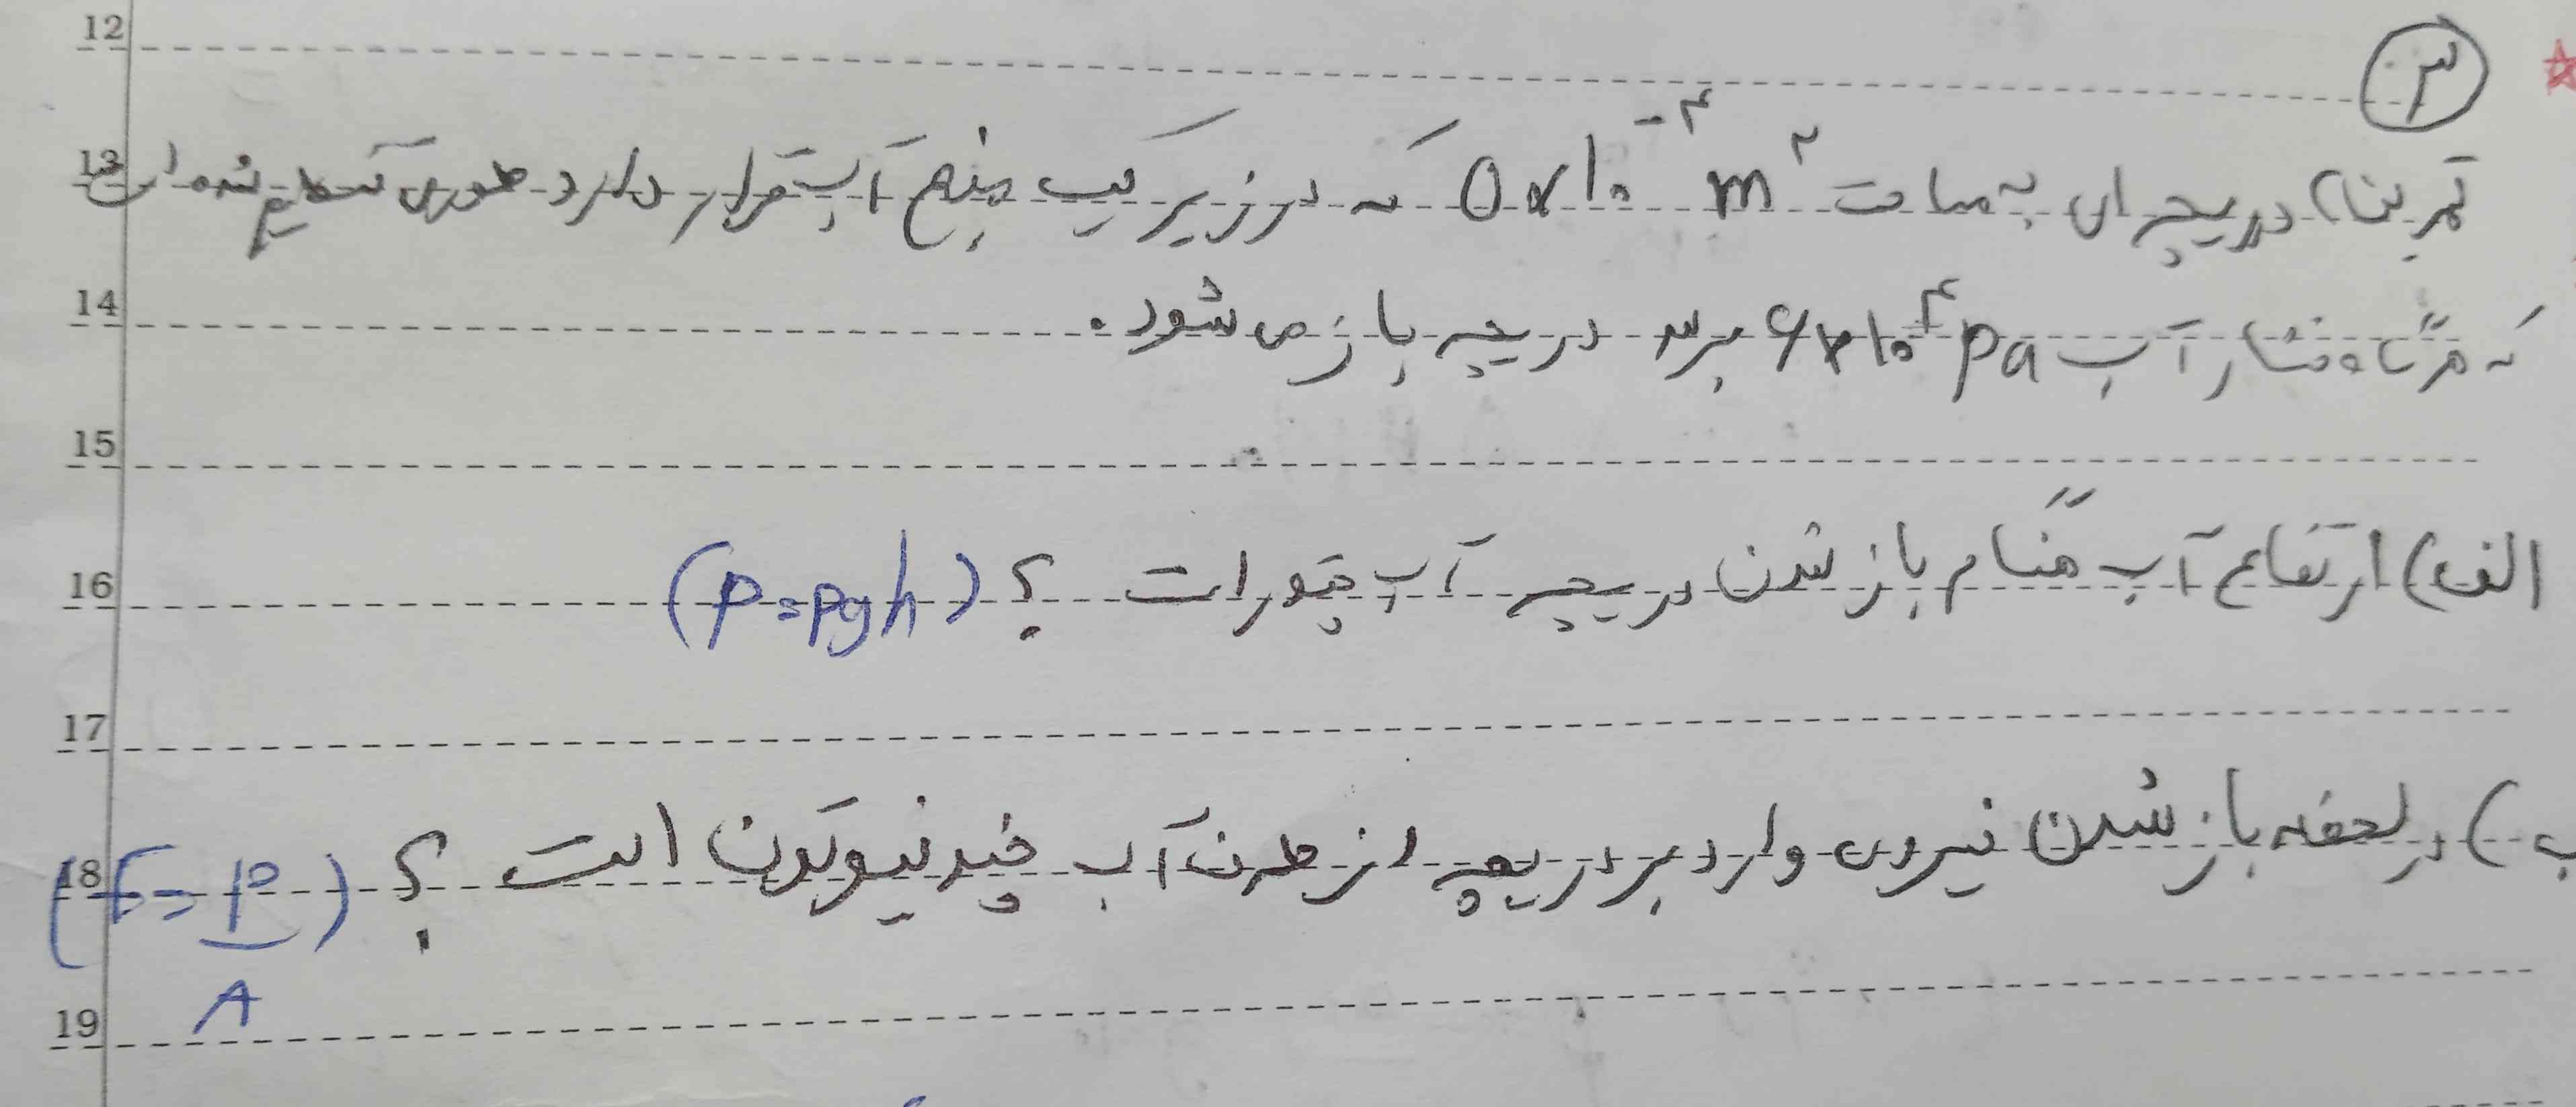 12
۳
13 تمرین) دریچه ای به مساحت ۵×۱۰⁻⁴ m² که در زیر یک منبع آب قرار دارد طوری تنظیم شده است
14 که هرگاه فشار آب ۶×۱۰⁴ pa برسد دریچه باز می شود.
15
16 الف) ارتفاع آب هنگام باز شدن دریچه آب چقدر است ؟ (P=ρgh)
17
18 ب) در لحظه باز شدن نیروی وارد بر دریچه از طرف آب چند نیوتون است ؟ (F=P/A)
19